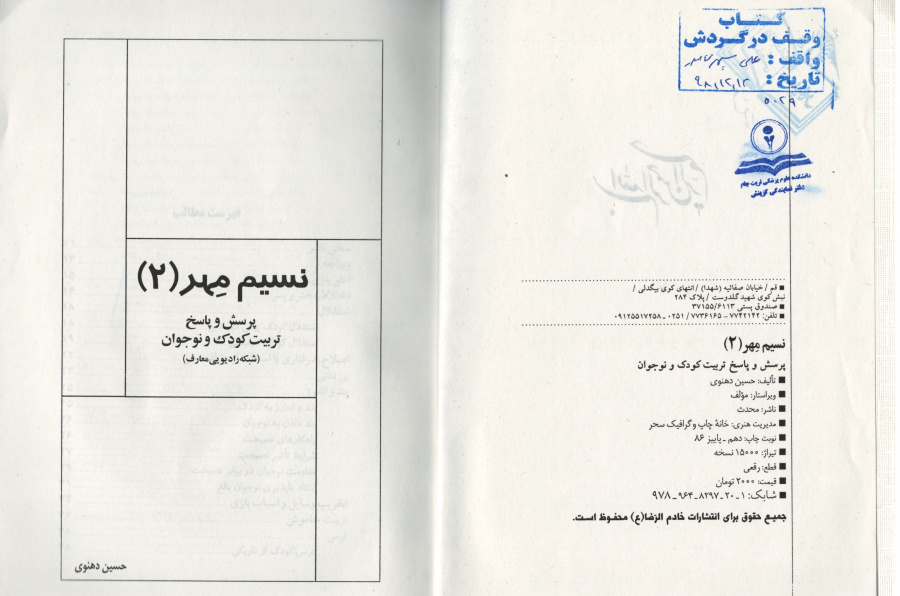 کتاب
وقف در گردش
واقف: علی
تاریخ: ۹۸/۱۲/۱۲
۵۰۲۹
دانشکده علوم پزشکی تربت جام
دفتر نمایندگی گزینش
■ قم / خیابان صفائیه (شهدا) / انتهای کوی بیگدلی /
نبش کوی شهید گلدوست / پلاک ۲۸۴
■ صندوق پستی ۳۷۱۵۵/۶۱۱۳
■ تلفن: ۷۷۴۲۱۴۲ - ۷۷۳۶۱۶۵ / ۰۲۵۱ - ۰۹۱۲۵۵۱۷۲۵۸
نسیم مِهر (۲)
پرسش و پاسخ تربیت کودک و نوجوان
■ تألیف: حسین دهنوی
■ ویراستار: مؤلف
■ ناشر: محدث
■ مدیریت هنری: خانهٔ چاپ و گرافیک سحر
■ نوبت چاپ: دهم ـ پاییز ۸۶
■ تیراژ: ۱۵۰۰۰ نسخه
■ قطع: رقعی
■ قیمت: ۲۰۰۰ تومان
■ شابک: ۱ - ۲۰ - ۸۲۹۷ - ۹۶۴ - ۹۷۸
جمیع حقوق برای انتشارات خادم الرضا(ع) محفوظ است.
نسیم مِهر (۲)
پرسش و پاسخ
تربیت کودک و نوجوان
(شبکه رادیویی معارف)
حسین دهنوی